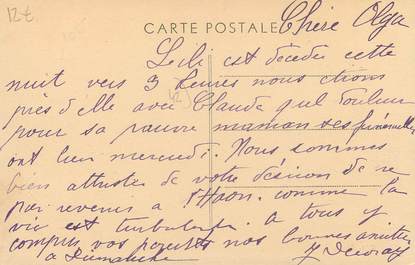 12 t
Chère Olga
CARTE POSTALE
Lili est décédée cette
nuit vers 3 heures nous étions
près d'elle avec Claude quel douleur
pour sa pauvre maman ses funérailles
ont lieu mercredi. Nous sommes
bien attristés de votre décision de ne
pas revenir a comme la
vie est a tous y
compris vos nos bonnes amitiés
a Dimanche